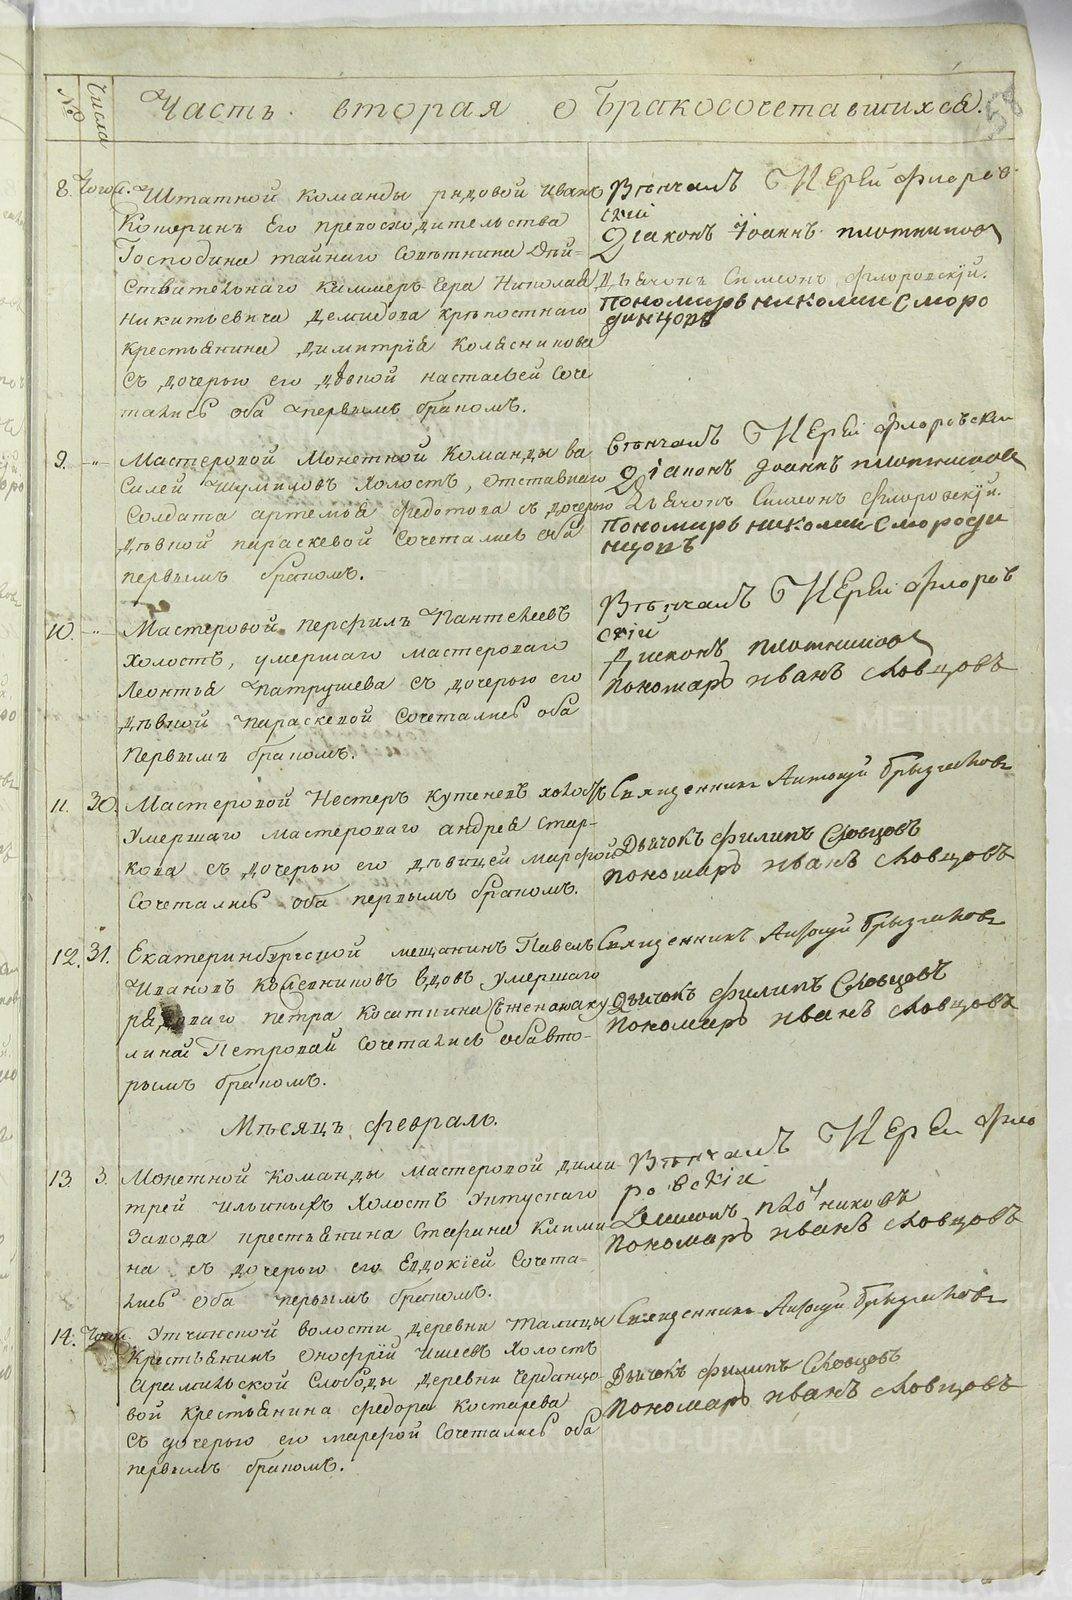 № Числа Часть вторая о бракосочетавшихся. 58
8. Тогож. Штатной команды рядовой Иванъ
Его превосходительства
Господина тайнаго Советника Дей-
ствительнаго Каммеръ-Ера Николая
Никитьевича Демидова крѣпостнаго
Крестьянина Димитрїя Колѣсникова
съ дочерью его дѣвкой настасьей Соче
тались оба первымъ бракомъ.
Вѣнчалъ Іерей Флоров
скїй
Дїаконъ Іоаннъ плотников
Дьячокъ Симеонъ Флоровскїй.
Пономарь николай Сморо
динцовъ
9. -„- Мастеровой Монетной Команды ва
силей Шумиловъ Холостъ, отставнаго
Солдата артемья Федотова съ дочерью
Дѣвкой параскевой Сочетались оба
первымъ бракомъ.
вѣнчалъ Іерей Флоровскїй
Дїаконъ Іоаннъ плотников
Дьячокъ Симеонъ Флоровскїй.
Пономарь николай Смороди
нцовъ
10. -„- Мастеровой перфилъ Пантелеевъ
Холостъ, умершаго мастероваго
Леонтья Патрушева съ дочерью его
Дѣвкой Параскевой Сочетались оба
Первымъ бракомъ.
Вѣнчалъ Іерей Флоров
скїй
Дияконъ плотников
Пономарь иванъ Словцовъ
11. 30. Мастеровой Нестеръ Кутеневъ холостъ
Умершаго мастероваго андрея Стар-
кова съ дочерью его дѣвицей марфой
Сочетались оба первымъ бракомъ.
Священникъ Антонїй Брызгаловъ
Дьячокъ Филипъ Словцовъ
Пономарь иванъ Словцовъ
12. 31. Екатеринбургской мещанинъ Павелъ
Ивановъ вдовъ умершаго
рядоваго петра Коситкина съ женою аку
линой Петровой Сочетались оба вто-
рымъ бракомъ.
Священникъ Антонїй Брызгаловъ
Дьячокъ Филипъ Словцовъ
Пономарь иванъ Словцовъ
Мѣсяцъ февраль.
13 3. Монетной Команды мастеровой дими
трей Ильиныхъ Холостъ Уктускаго
Завода крестьянина Стафина
на съ дочерью его Евдокїей Сочета-
лись Оба первымъ бракомъ.
Вѣнчалъ Іерей Фло
ровскїй
плотниковъ
Пономарь иванъ Словцовъ
14. Тогож. Уткинской волости деревни Талицы
Крестьянинъ Онофрїй Ишеевъ Холостъ
Арамильской Слободы деревни Черданцо
вой Крестьянина Федора Костарева
Съ дочерью его марфой Сочетались оба
первымъ бракомъ.
Священникъ Антонїй Брызгаловъ
Дьячокъ Филипъ Словцовъ
Пономарь иванъ Словцовъ
METRIKI.GASO-URAL.RU